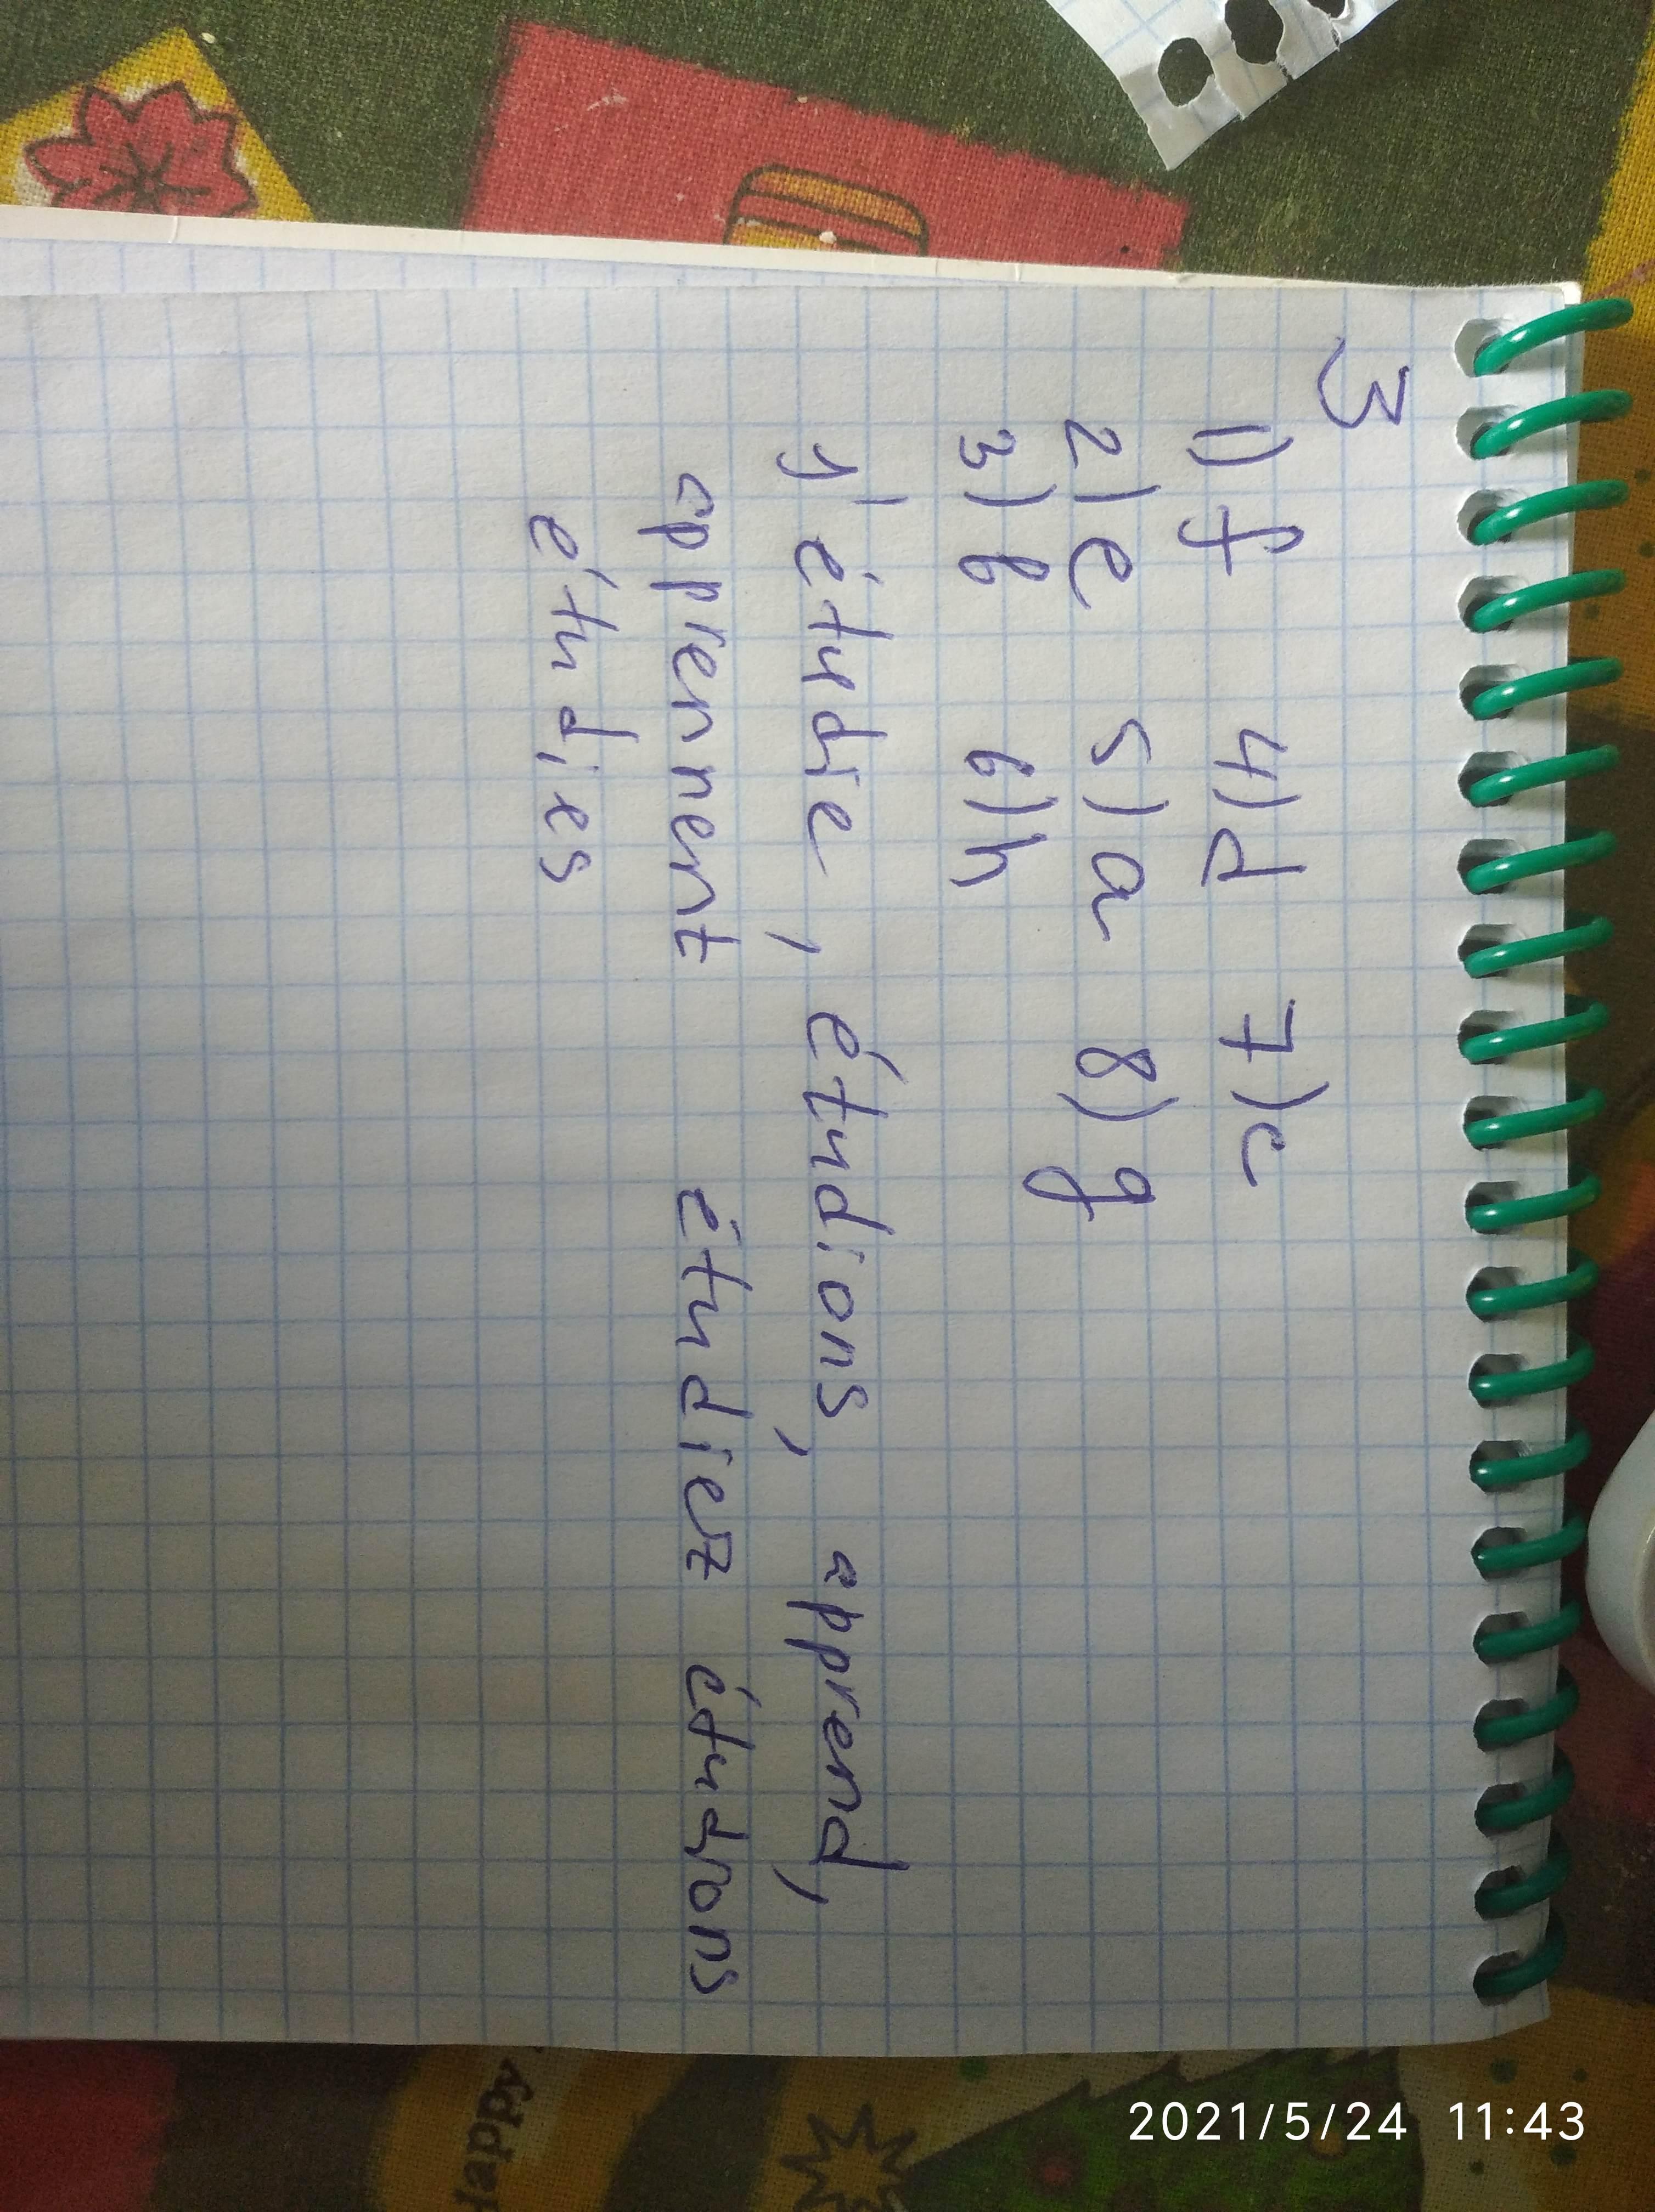 3
1) f 4) d 7) c
2) e 5) a 8) g
3) b 6) h
j' étudie, étudions, apprend,
apprennent étudiez étudions
étudies
2021/5/24 11:43
Happy